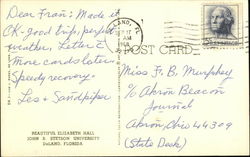 Dear Fran: Made it
OK - good trip, perfect
weather. Letter &
more cards later.
Speedy recovery -
Les & Sandpiper
BEAUTIFUL ELIZABETH HALL
JOHN B. STETSON UNIVERSITY
DeLAND, FLORIDA
POST CARD
Miss F. B. Murphey
% Akron Beacon
Journal
Akron, Ohio 44309
(State Desk)